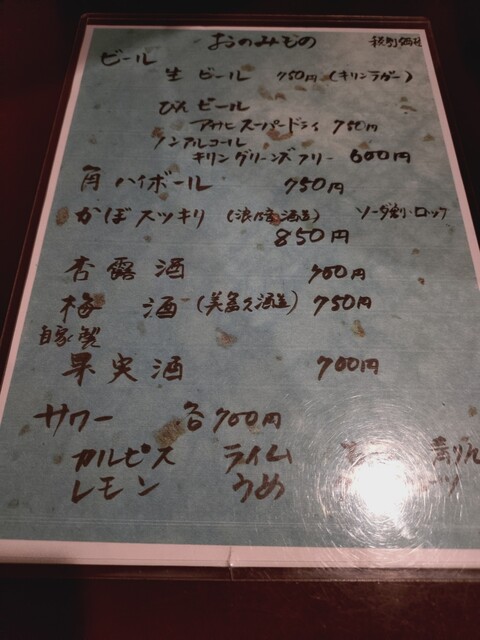 おのみもの 税別価格
ビール
生ビール 750円 (キリンラガー)
びんビール
アサヒスーパードライ 750円
ノンアルコール
キリングリーンズフリー 600円
角ハイボール 750円
かぼスッキリ ソーダ割・ロック
850円
杏露酒 700円
梅酒 (美冨久酒造) 750円
自家製
果実酒 700円
サワー 各700円
カルピス ライム 青りん
レモン うめ